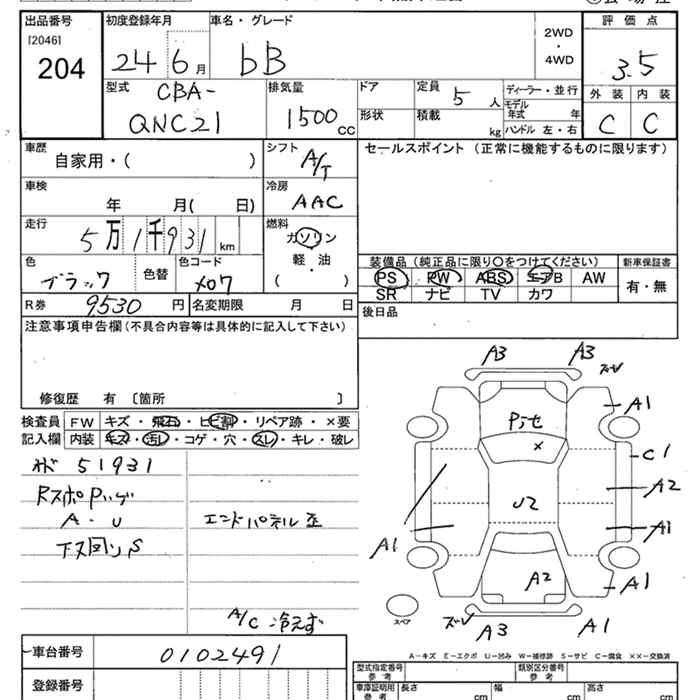 出品番号 初度登録年月 車名・グレード 2WD・4WD 評価点
[2046]
204
24 6月 bB 3.5
型式 CBA-QNC21 排気量 1500cc ドア 形状 定員 5人 積載 kg ディーラー・並行 モデル年式 年 ハンドル 左・右 外装 内装
C C
車歴 自家用・( ) シフト A/T セールスポイント (正常に機能するものに限ります)
車検 年 月( 日) 冷房 AAC
走行 5万1千931km 燃料 ガソリン 軽・油 ( )
色 ブラック 色替 色コード X07
装備品 (純正品に限り〇をつけてください) 新車保証書
PS PW ABS エアB AW 有・無
SR ナビ TV カワ
R券 9,530円 名変期限 月 日 後日品
注意事項申告欄 (不具合内容等は具体的に記入して下さい)
修復歴 有 〔箇所 〕
検査員 FW キズ・飛石・ヒビ割・リペア跡・×要
記入欄 内装 キズ・汚レ・コゲ・穴・スレ・キレ・破レ
51931
A・U エンドパネル歪
下ス回りS
A/C 冷えず
A3 A3 ズレ
A1
Pite
C1
×
A2
U2
A1 A1
A2 A1
スペア ズレ A3 A1
A-キズ E-エクボ U-凹み W-補修跡 S-サビ C-腐食 ××-交換済
車台番号 0102491
型式指定番号 参考 類別区分番号 参考
登録番号
車庫証明用 参考 長さ cm 幅 cm 高さ cm